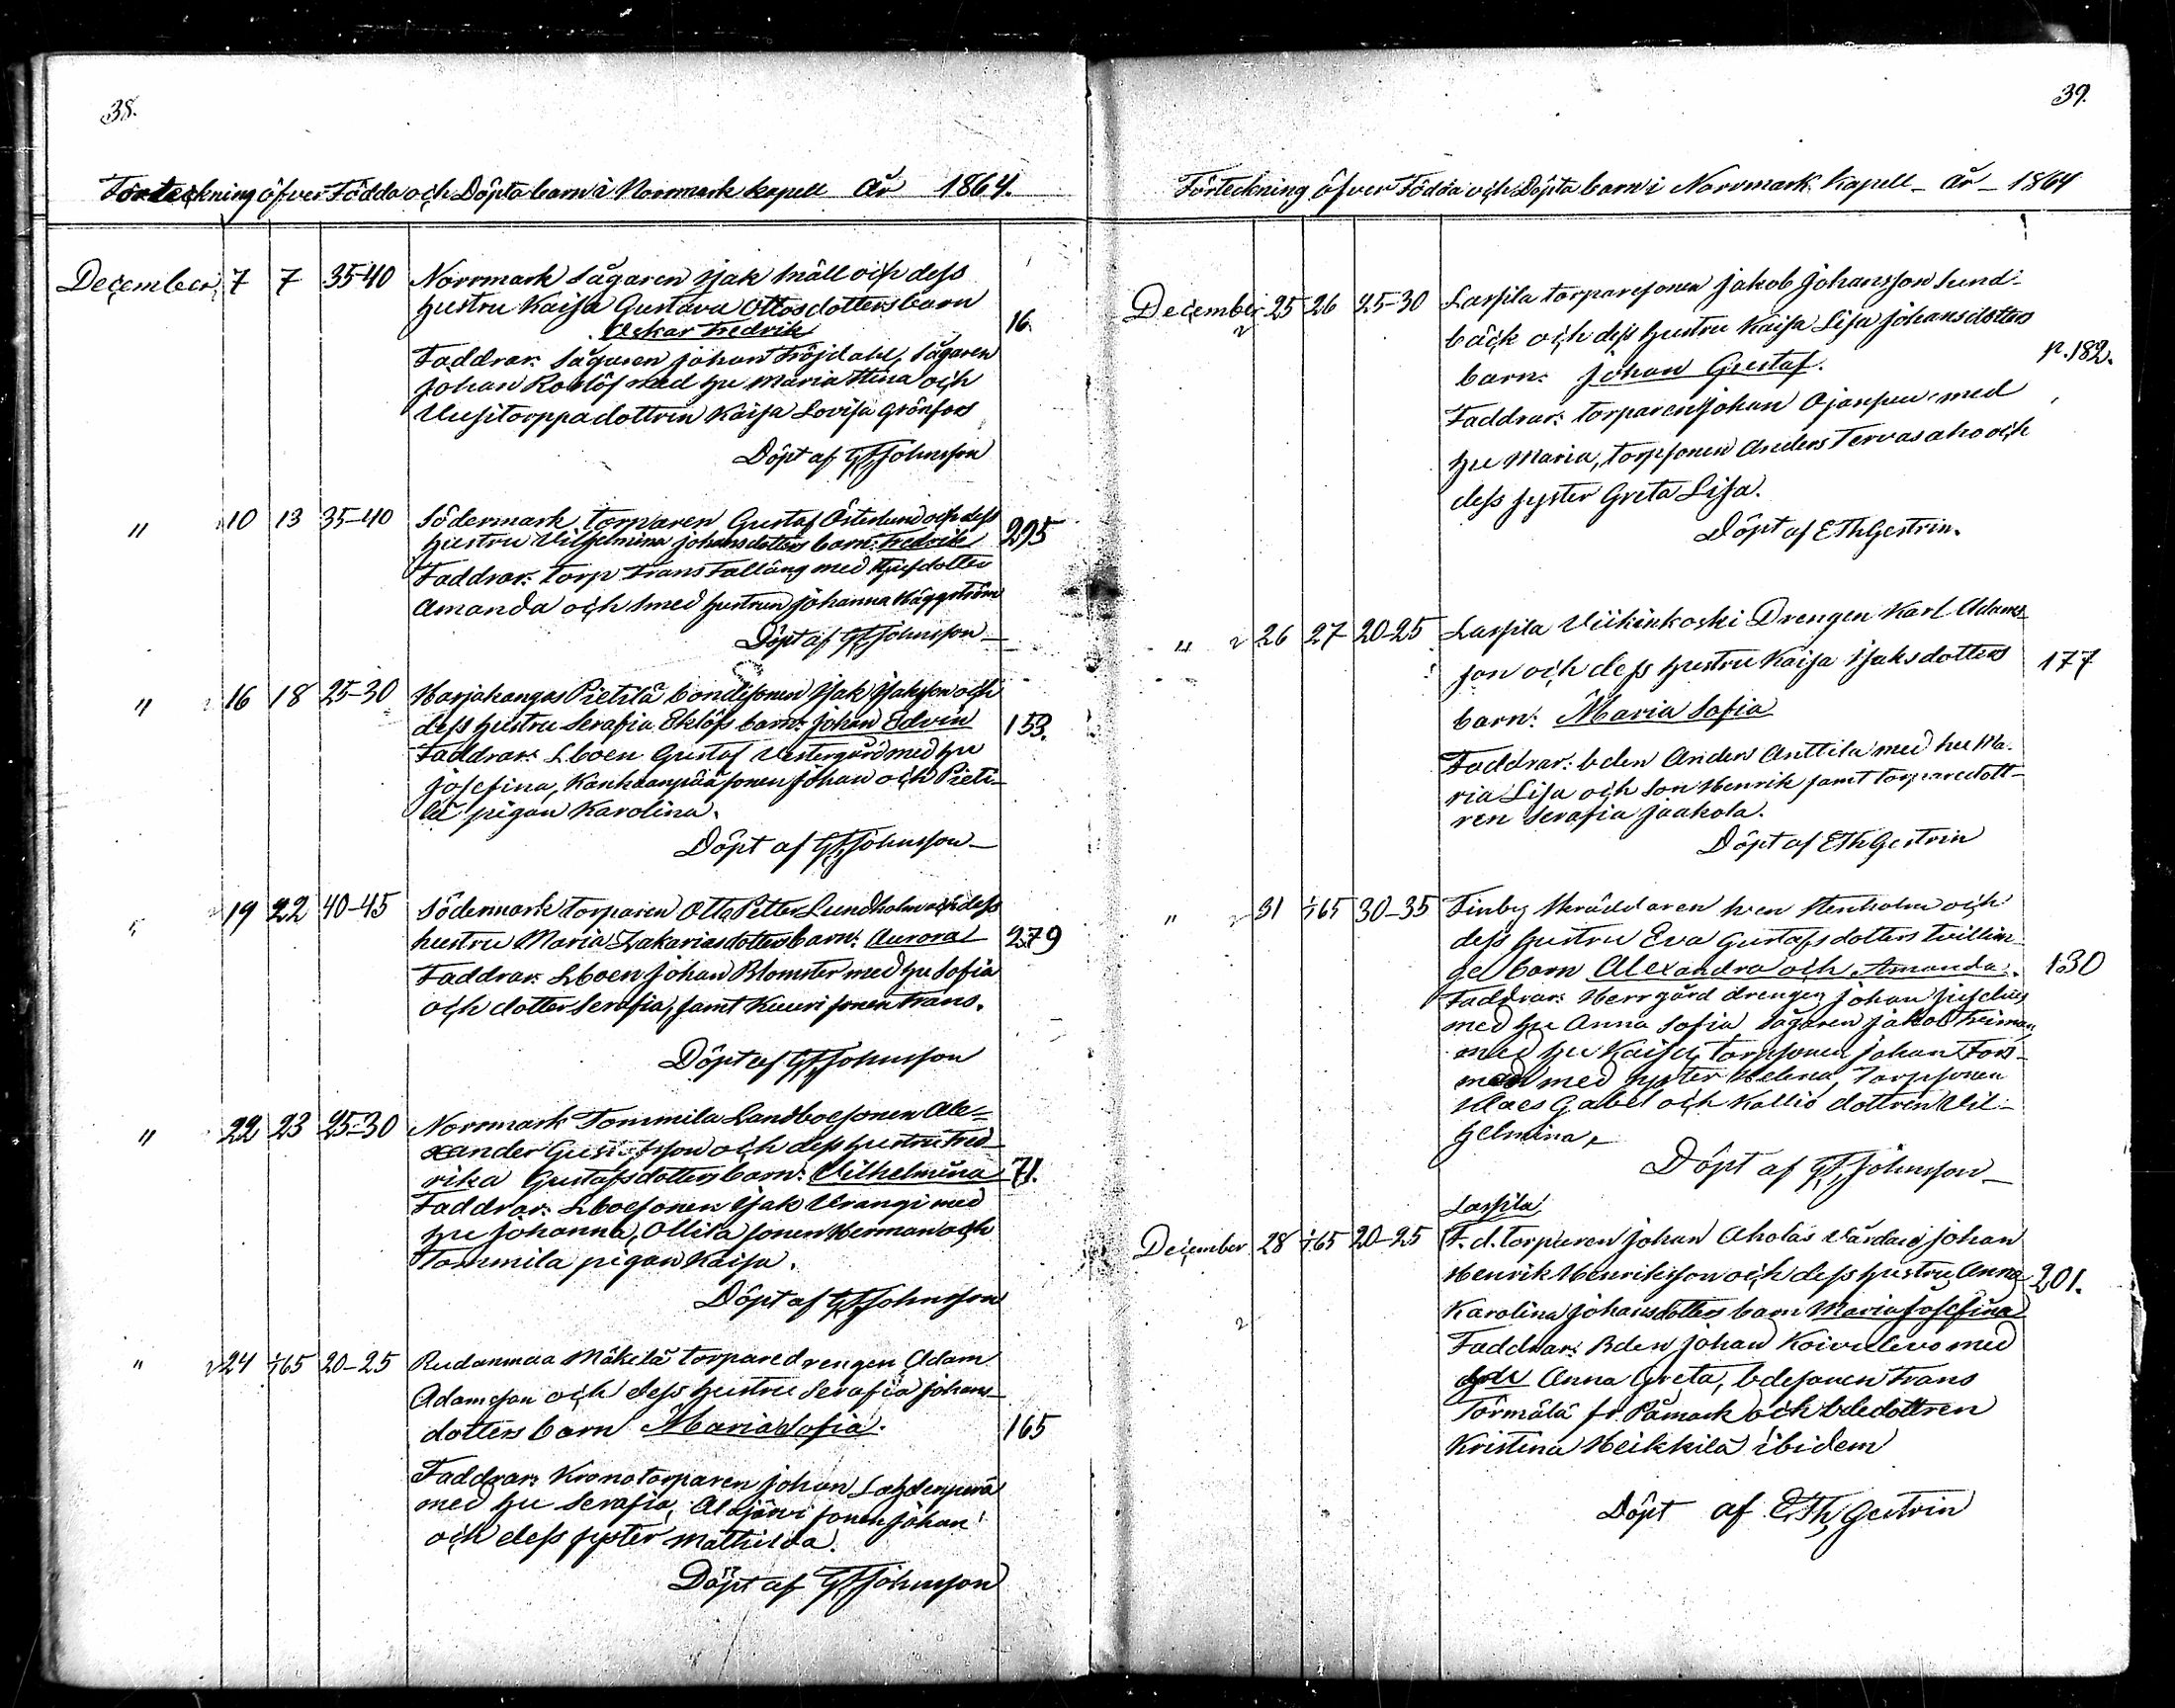 38.
Förteckning öfver Födda och Döpta barn i Norrmark kapell År 1864.
December 7 7 35-40 Norrmark Sågaren Isak Mäll och dess
hustru Kaisa Gustava Ottosdotters barn
Oskar Fredrik 16.
Faddrar: Sågaren Johan Fröjdahl, Sågaren
Johan Roslöf med hu Maria Stina och
Uusitorppadottren Kaisa Lovisa Grönfors
Döpt af GFJohnsson
" 10 13 35-40 Södermark torparen Gustaf Österlund och dess
hustru Vilhelmina Johansdotters barn: Fredrik 295
Faddrar: Torp Frans Falläng med
Amanda och Smed hustrun Johanna Häggström
Döpt af GFJohnsson
" 16 18 25-30 Harjakangas Pietilä bondesonen Isak Isaksson och
dess hustru Serafia Eklöfs barn: Johan Edvin 153.
Faddrar: Lboen Gustaf Vestergård med hu
Josefina, Kankaanpää sonen Johan och Pieti-
lä pigan Karolina.
Döpt af GFJohnsson
" 19 22 40-45 Södermark torparen Otto Petter Lundholm och dess
hustru Maria Zakariasdotters barn: Aurora 279
Faddrar: Lboen Johan Blomster med hu Sofia
och dotter Serafia, samt Kuuri sonen Frans.
Döpt af GFJohnsson
" 22 23 25-30 Norrmark Tommila Landboesonen Ale-
xander Gustafsson och dess hustru Fred-
rika Gustafsdotters barn: Vilhelmina 71.
Faddrar: Lboesonen Isak Vrangi med
hu Johanna, Ollila sonen Herman och
Tommila pigan Kaisa.
Döpt af GFJohnsson
" 24 1/1 65 20-25 Rudanmaa Mäkelä torparedrengen Adam
Adamsson och dess hustru Serafia Johans-
dotters barn Maria Sofia. 165
Faddrar: Kronotorparen Johan Lahdenperä
med hu Serafia, Alajärvi sonen Johan
och dess syster Mathilda.
Döpt af GFJohnsson
39.
Förteckning öfver Födda och Döpta barn i Norrmark Kapell - år - 1864
December 25 26 25-30 Lassila torparesonen Jakob Johansson Sund-
bäck och dess hustru Kaisa Lisa Johansdotters
barn: Johan Gustaf. p. 182.
Faddrar: torparen Johan Ojansuu med
hu Maria, torpsonen Anders Tervasaho och
dess syster Greta Lisa.
Döpt af EThGestrin.
" 26 27 20-25 Lassila Viikinkoski Drengen Karl Adams-
son och dess hustru Kaisa Isaksdotters 177
barn: Maria Sofia
Faddrar: bden Anders Anttila med hu Ma-
ria Lisa och son Henrik samt torparedott-
ren Serafia Jaakola.
Döpt af EThGestrin
" 31 1/1 65 30-35 Finby Skräddaren Stenholm och
dess hustru Eva Gustafsdotters tvillin-
ge barn Alexandra och Amanda. 130
Faddrar: Herrgård drengen Johan Juselius
med hu Anna Sofia Sågaren Jakob Freiman
med hu Kaisa, torpsonen Johan Fors-
man med syster Helena, Torpsonen
Klaes Gabel och Kallio dottren Vil-
helmina,
Döpt af GFJohnsson
Lassila
December 28 1/1 65 20-25 F. d. torparen Johan Aholas Johan
Henrik Henriksson och dess hustru Anna 201.
Karolina Johansdotters barn Maria Josefina
Faddrar: Bden Johan Koivulevo med
hu Anna Greta, bdesonen Frans
Törmälä fr. Påmark och bdedottren
Kristina Heikkilä ibidem
Döpt af E.Th. Gestrin